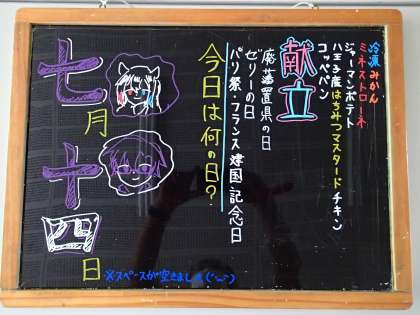 冷凍みかん
ミネストローネ
ジャーマンポテト
八王子産はちみつマスタードチキン
コッペパン
献立
廃藩置県の日
ゼリーの日
パリ祭・フランス建国記念日
今日は何の日？
七月十四日
※スペースが空きました(^-^)